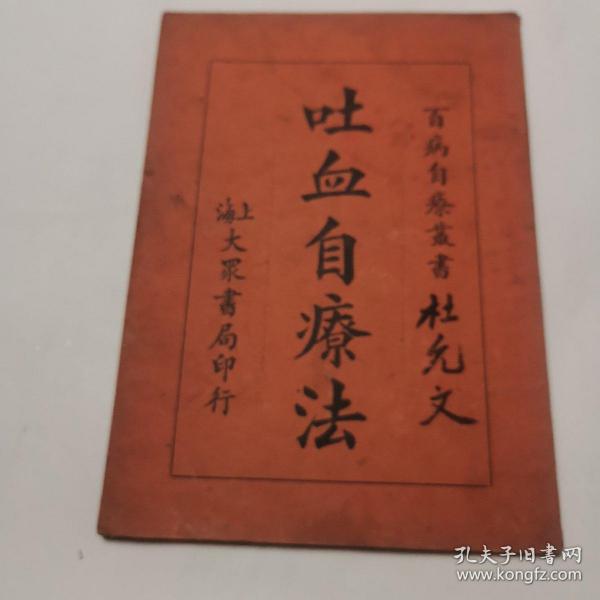 百病自療叢書 杜允文
吐血自療法
上海大眾書局印行
孔夫子旧书网
www.kongfz.com